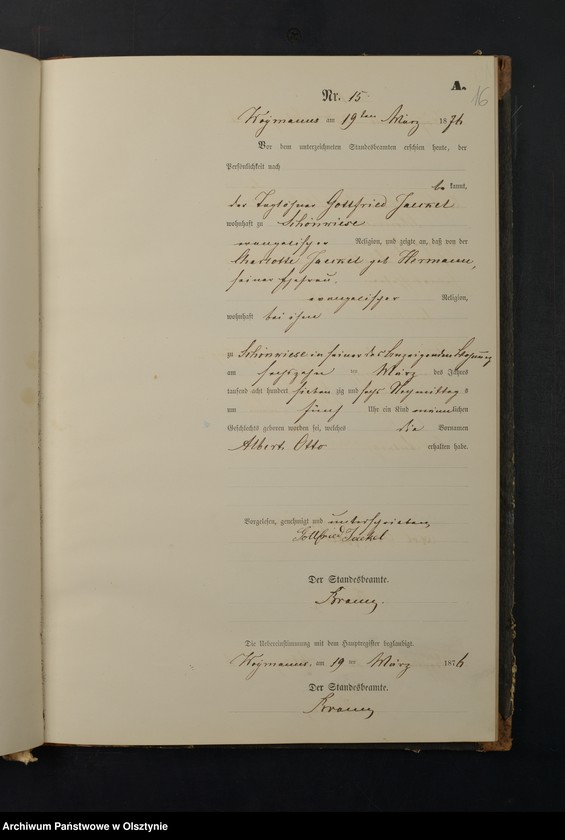 A.
16
Nr. 15.
Woymanns am 19ten März 1876
Vor dem unterzeichneten Standesbeamten erschien heute, der
Persönlichkeit nach
be kannt,
der Taglöhner Gottfried Jaeckel
wohnhaft zu Schönwiese
evangelischer Religion, und zeigte an, daß von der
Charlotte Jaeckel geb Hermann,
seiner Ehefrau,
evangelischer Religion,
wohnhaft bei ihm
zu Schönwiese in seiner des Anzeigenden Wohnung
am sechszehn ten März des Jahres
tausend acht hundert sieben zig und sechs Nachmittag s
um fünf Uhr ein Kind männlichen
Geschlechts geboren worden sei, welches die Vornamen
Albert Otto erhalten habe.
Vorgelesen, genehmigt und unterschrieben,
Gottfried Jaeckel
Der Standesbeamte.
Die Uebereinstimmung mit dem Hauptregister beglaubigt.
Woymanns, am 19 ten März 1876
Der Standesbeamte.
Archiwum Państwowe w Olsztynie